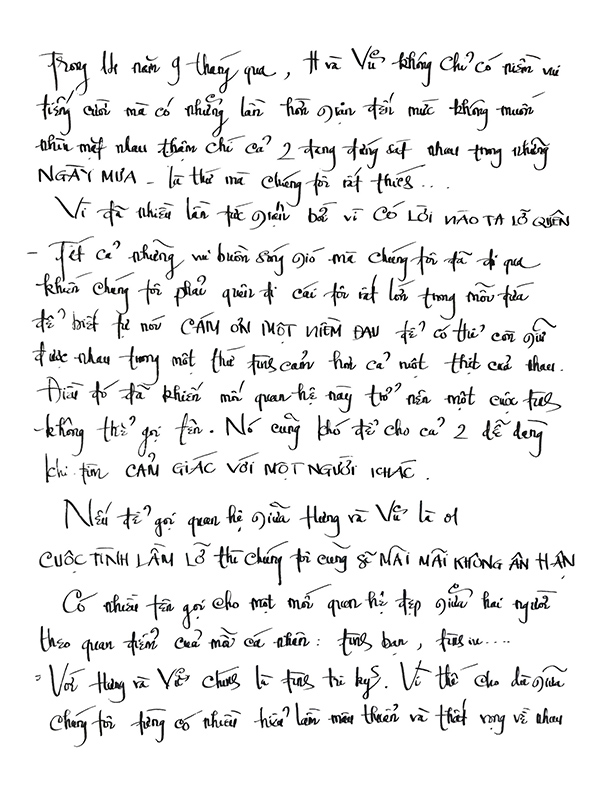 Trong 14 năm 9 tháng qua, H và Vũ không chỉ có niềm vui
tiếng cười mà có những lần hờn giận đến mức không muốn
nhìn mặt nhau thậm chí cả 2 đang đứng sát nhau trong những
NGÀY MƯA - là thứ mà chúng tôi rất thích....
Vì đã nhiều lần tức giận bả vì CÓ LỜI NÀO TA LỠ QUÊN
- Tất cả những vui buồn sóng gió mà chúng tôi đã đi qua
khiến chúng tôi phải quên đi cái tôi rất lớn trong mỗi đứa
để biết tự nói CÁM ƠN MỘT NIỀM ĐAU để có thể còn giữ
được nhau trong một thứ tình cảm hơn cả ruột thịt của nhau.
Điều đó đã khiến mối quan hệ này trở nên một cuộc tình
không thể gọi tên. Nó cũng khó để cho cả 2 dễ dàng
khi tìm CẢM GIÁC VỚI MỘT NGƯỜI KHÁC.
Nếu để gọi quan hệ giữa Hưng và Vũ là 01
CUỘC TÌNH LẦM LỠ thì chúng tôi cũng sẽ MÃI MÃI KHÔNG ÂN HẬN
Có nhiều tên gọi cho một mối quan hệ đẹp giữa hai người
theo quan điểm của mỗi cá nhân: tình bạn, tình iu....
Với Hưng và Vũ chính là tình tri kỷ. Vì thế cho dù giữa
chúng tôi từng có nhiều hiểu lầm mâu thuẫn và thất vọng về nhau